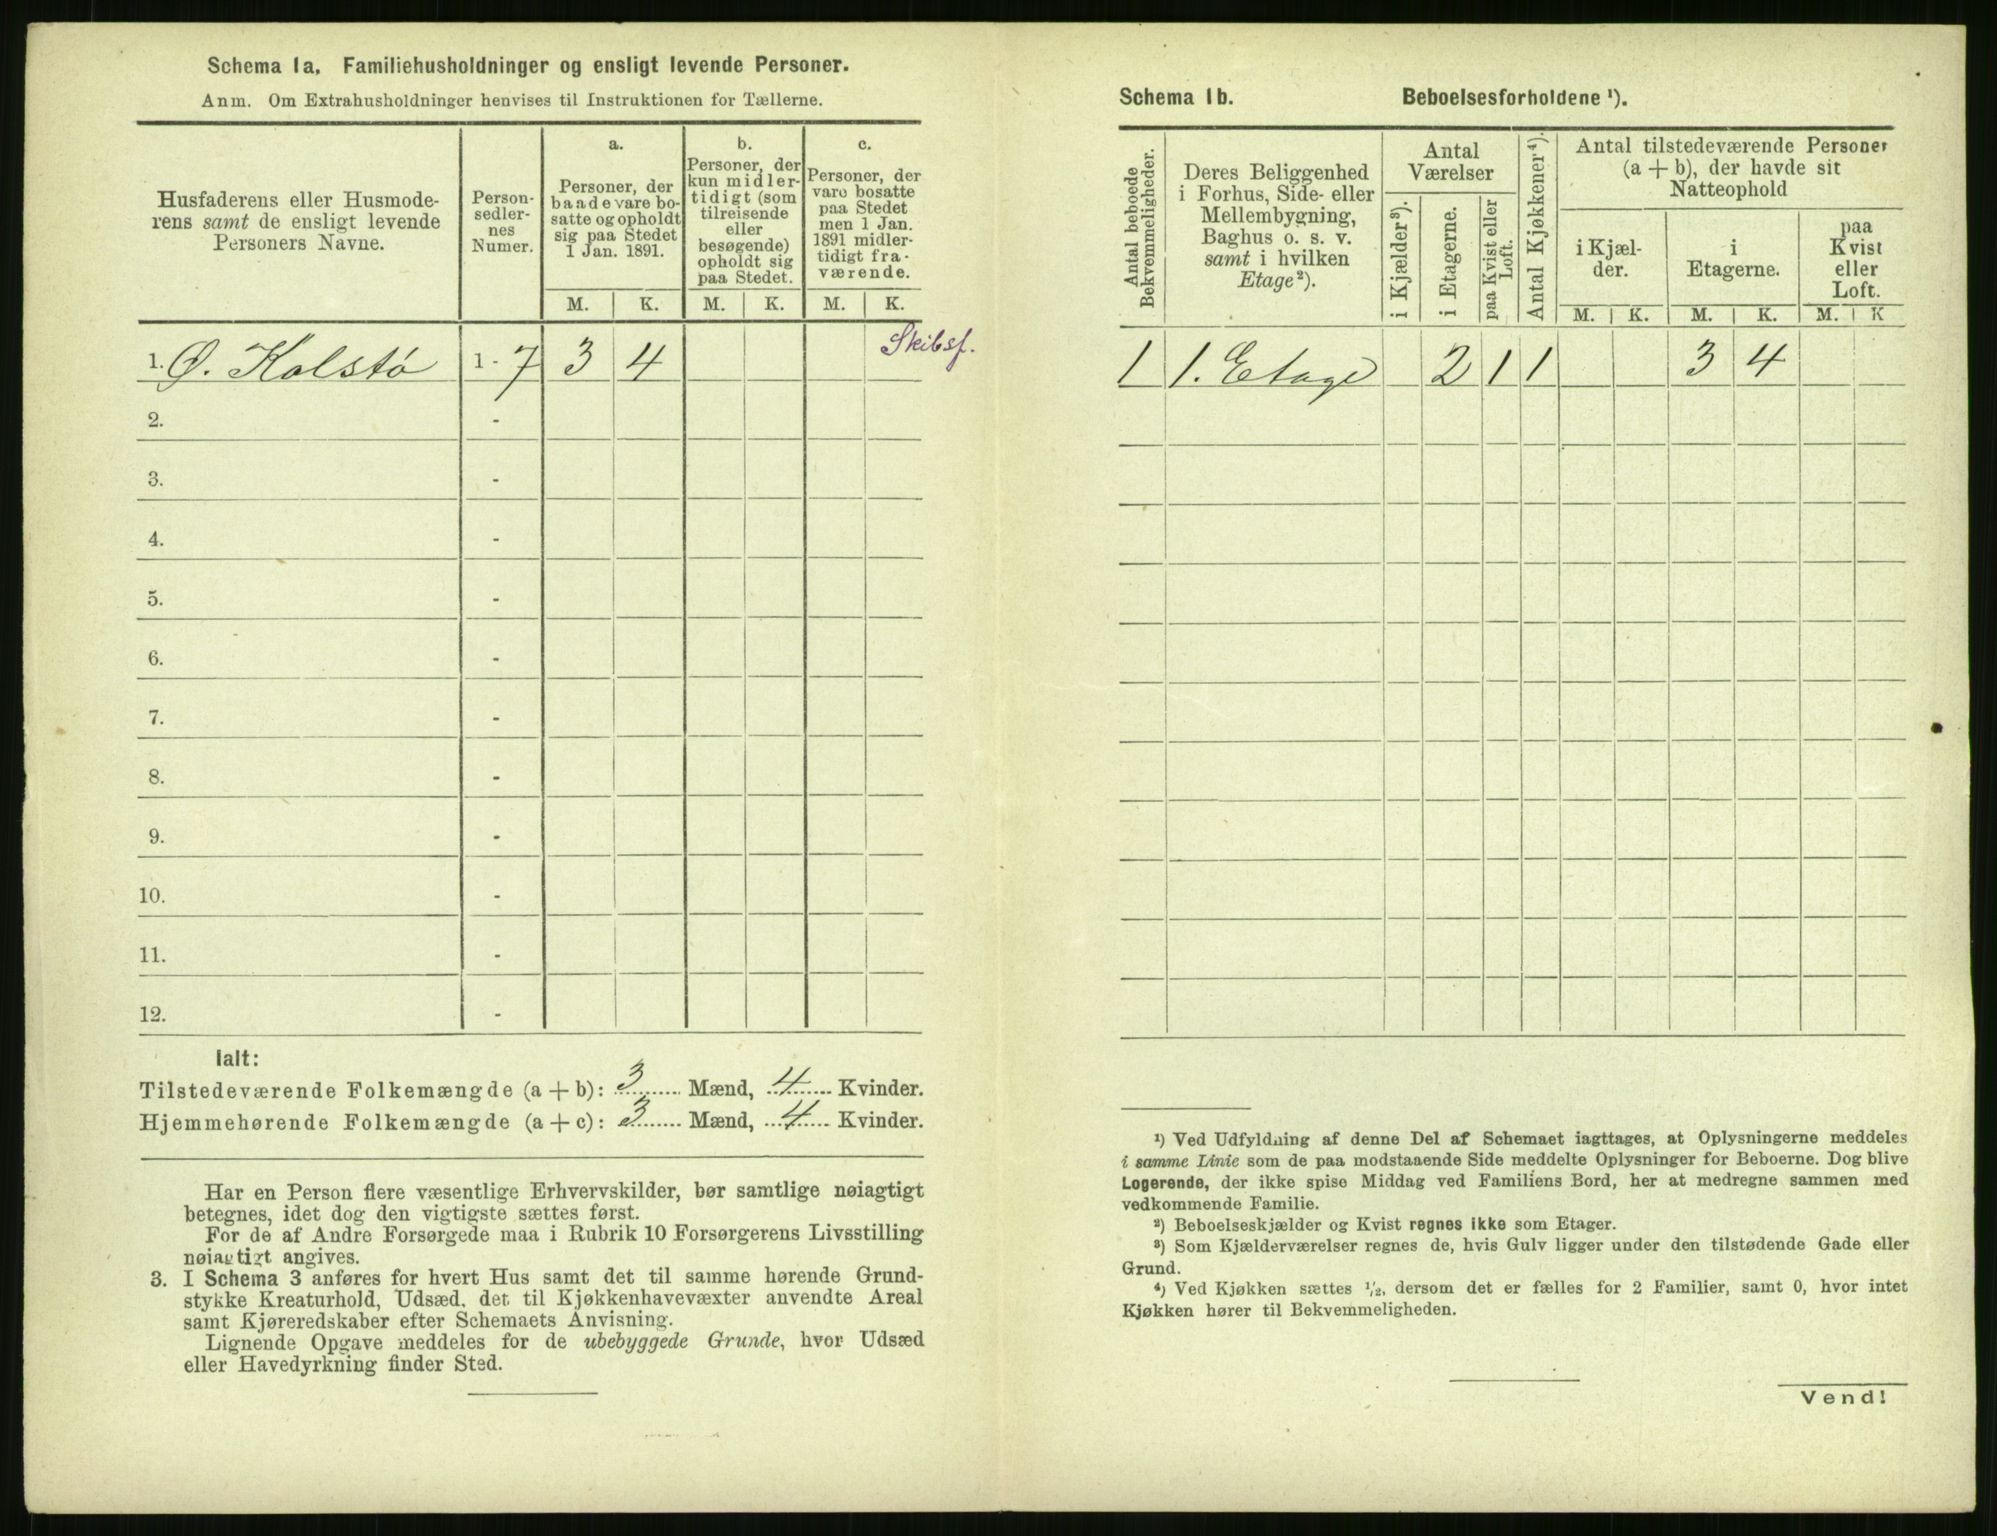 Schema 1a. Familiehusholdninger og ensligt levende Personer.
Anm. Om Extrahusholdninger henvises til Instruktionen for Tællerne.
Husfaderens eller Husmode-
rens samt de ensligt levende
Personers Navne.
Person-
sedler-
nes
Numer.
a.
Personer, der
baade vare bo-
satte og opholdt
sig paa Stedet
1 Jan. 1891.
b.
Personer, der
kun midler-
tidigt (som
tilreisende
eller
besøgende)
opholdt sig
paa Stedet.
c.
Personer, der
vare bosatte
paa Stedet
men 1 Jan.
1891 midler-
tidigt fra-
værende.
M. K. M. K. M. K.
1. Ø. Kolstø 1 - 7 3 4 Skibsf.
2. -
3. -
4. -
5. -
6. -
7. -
8. -
9. -
10. -
11. -
12. -
Ialt:
Tilstedeværende Folkemængde (a + b): 3 Mænd, 4 Kvinder.
Hjemmehørende Folkemængde (a + c): 3 Mænd, 4 Kvinder.
Har en Person flere væsentlige Erhvervskilder, bør samtlige nøiagtigt
betegnes, idet dog den vigtigste sættes først.
For de af Andre Forsørgede maa i Rubrik 10 Forsørgerens Livsstilling
nøiagtigt angives.
3. I Schema 3 anføres for hvert Hus samt det til samme hørende Grund-
stykke Kreaturhold, Udsæd, det til Kjøkkenhavevæxter anvendte Areal
samt Kjøreredskaber efter Schemaets Anvisning.
Lignende Opgave meddeles for de ubebyggede Grunde, hvor Udsæd
eller Havedyrkning finder Sted.
Schema 1b. Beboelsesforholdene ¹).
Antal beboede
Bekvemmeligheder.
Deres Beliggenhed
i Forhus, Side- eller
Mellembygning,
Baghus o. s. v.
samt i hvilken
Etage ²).
Antal
Værelser
i Kjælder ³).
i Etagerne.
paa Kvist eller
Loft.
Antal Kjøkkener ⁴).
Antal tilstedeværende Personer
(a + b), der havde sit
Natteophold
i Kjæl-
der.
i
Etagerne.
paa
Kvist
eller
Loft.
M. K. M. K. M. K
1 1. Etage 2 1 1 3 4
¹) Ved Udfyldning af denne Del af Schemaet iagttages, at Oplysningerne meddeles
i samme Linie som de paa modstaaende Side meddelte Oplysninger for Beboerne. Dog blive
Logerende, der ikke spise Middag ved Familiens Bord, her at medregne sammen med
vedkommende Familie.
²) Beboelseskjælder og Kvist regnes ikke som Etager.
³) Som Kjælderværelser regnes de, hvis Gulv ligger under den tilstødende Gade eller
Grund.
⁴) Ved Kjøkken sættes ½, dersom det er fælles for 2 Familier, samt 0, hvor intet
Kjøkken hører til Bekvemmeligheden.
Vend!